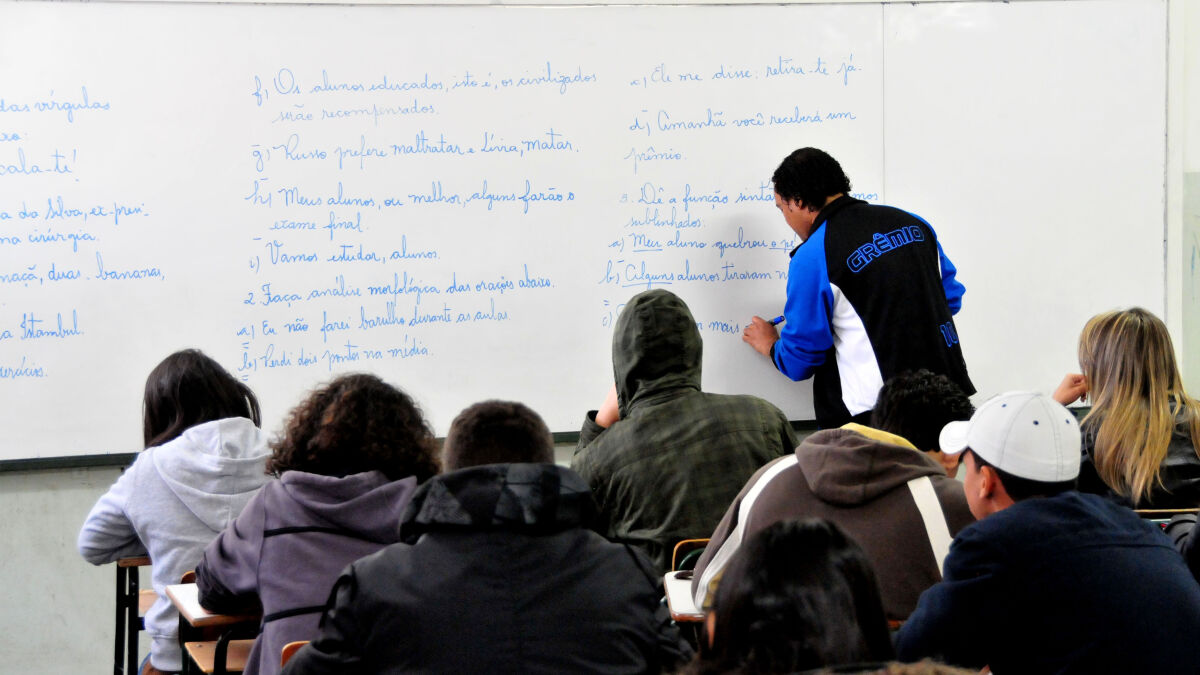 das vírgulas
cala-te!
da Silva, ex-presi-
ma cirurgia.
maçã, duas bananas,
a Istambul.
f) Os alunos educados, isto é, os civilizados
serão recompensados.
g) Russo prefere maltratar e Lívia, matar.
h) Meus alunos, ou melhor, alguns farão o
exame final.
i) Vamos estudar, alunos.
2. Faça análise morfológica das orações abaixo.
a) Eu não farei barulho durante as aulas.
b) Perdi dois pontos na média.
c) Ele me disse: retira-te já.
d) Amanhã você receberá um
prêmio.
3. Dê a função sintá mos
sublinhados:
a) Meu aluno quebrou o pé
b) Alguns alunos tiraram
c) mais
GRÊMIO
10